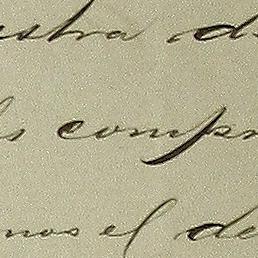 stra de
s comp
nos el de